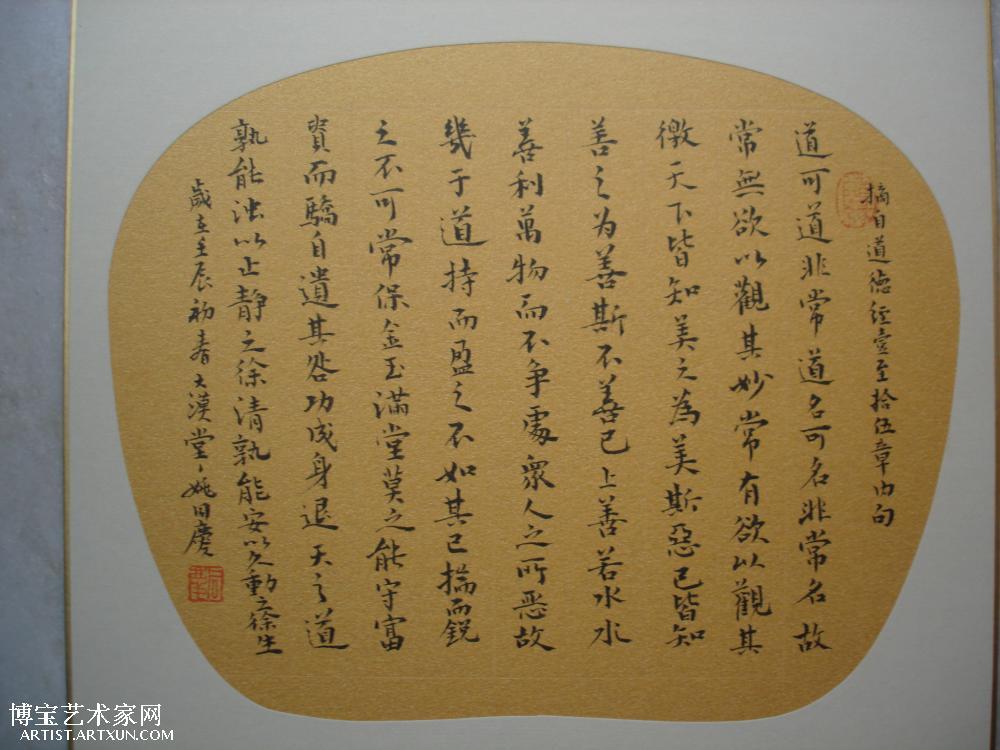 摘自道德经壹至拾伍章内句
道可道非常道名可名非常名故
常無欲以觀其妙常有欲以觀其
徼天下皆知美之為美斯惡已皆知
善之为善斯不善已上善若水水
善利萬物而不争處衆人之所恶故
幾于道持而盈之不如其已揣而銳
之不可常保金玉滿堂莫之能守富
貴而驕自遺其咎功成身退天之道
孰能浊以止靜之徐清孰能安以久動之徐生
歲在壬辰初春大漠堂
博宝艺术家网
ARTIST.ARTXUN.COM